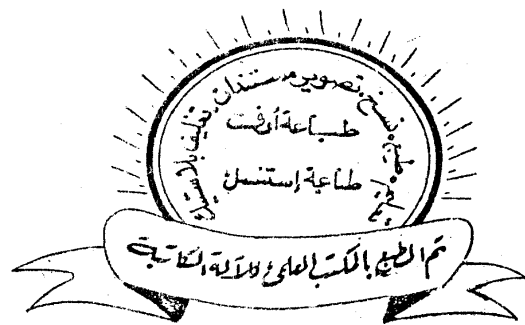 طبع نسخ تصوير مستندات تغليف بلاستيك
طباعة أوفست
طباعة إستنسل
تم الطبع بالمكتب العلمي للآلة الكاتبة